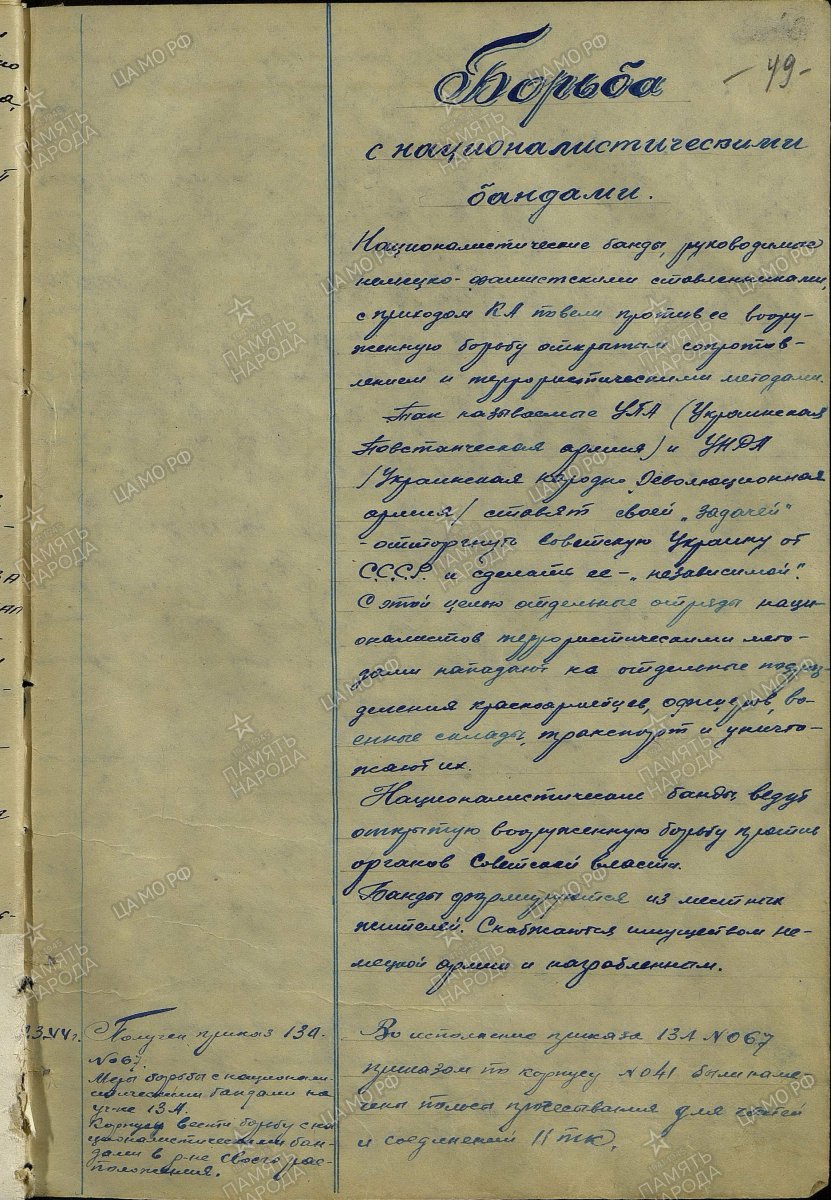 - 49 -
Борьба
с националистическими
бандами.
Националистические банды, руководимые
немецко-фашистскими ставленниками,
с приходом КА повели против ее воору-
женную борьбу открытым сопротив-
лением и террористическими методами.
Так называемые УПА (Украинская
Повстанческая армия) и УНДА
/Украинская народно Революционная
армия/ ставят своей „задачей"
- отторгнуть Советскую Украину от
С.С.С.Р. и сделать ее - „независимой".
С этой целью отдельные отряды наци-
оналистов террористическими мето-
дами нападают на отдельные подраз-
деления красноармейцев, офицеров, во-
енные склады, транспорт и уничто-
жают их.
Националистические банды ведут
открытую вооруженную борьбу против
органов Советской власти.
Банды формируются из местных
жителей. Снабжаются имуществом не-
мецкой армии и награбленным.
Получен приказ 13А.
№067.
Меры борьбы с национали-
стическими бандами на
уч-ке 13А.
Корпусу вести борьбу с на-
ционалистическими бан-
дами в р-не своего рас-
положения.
Во исполнение приказа 13А №067
приказом по корпусу №041 были наме-
чены полосы прочесывания для частей
и соединений 11 тк.
ЦАМО РФ
ПАМЯТЬ
НАРОДА